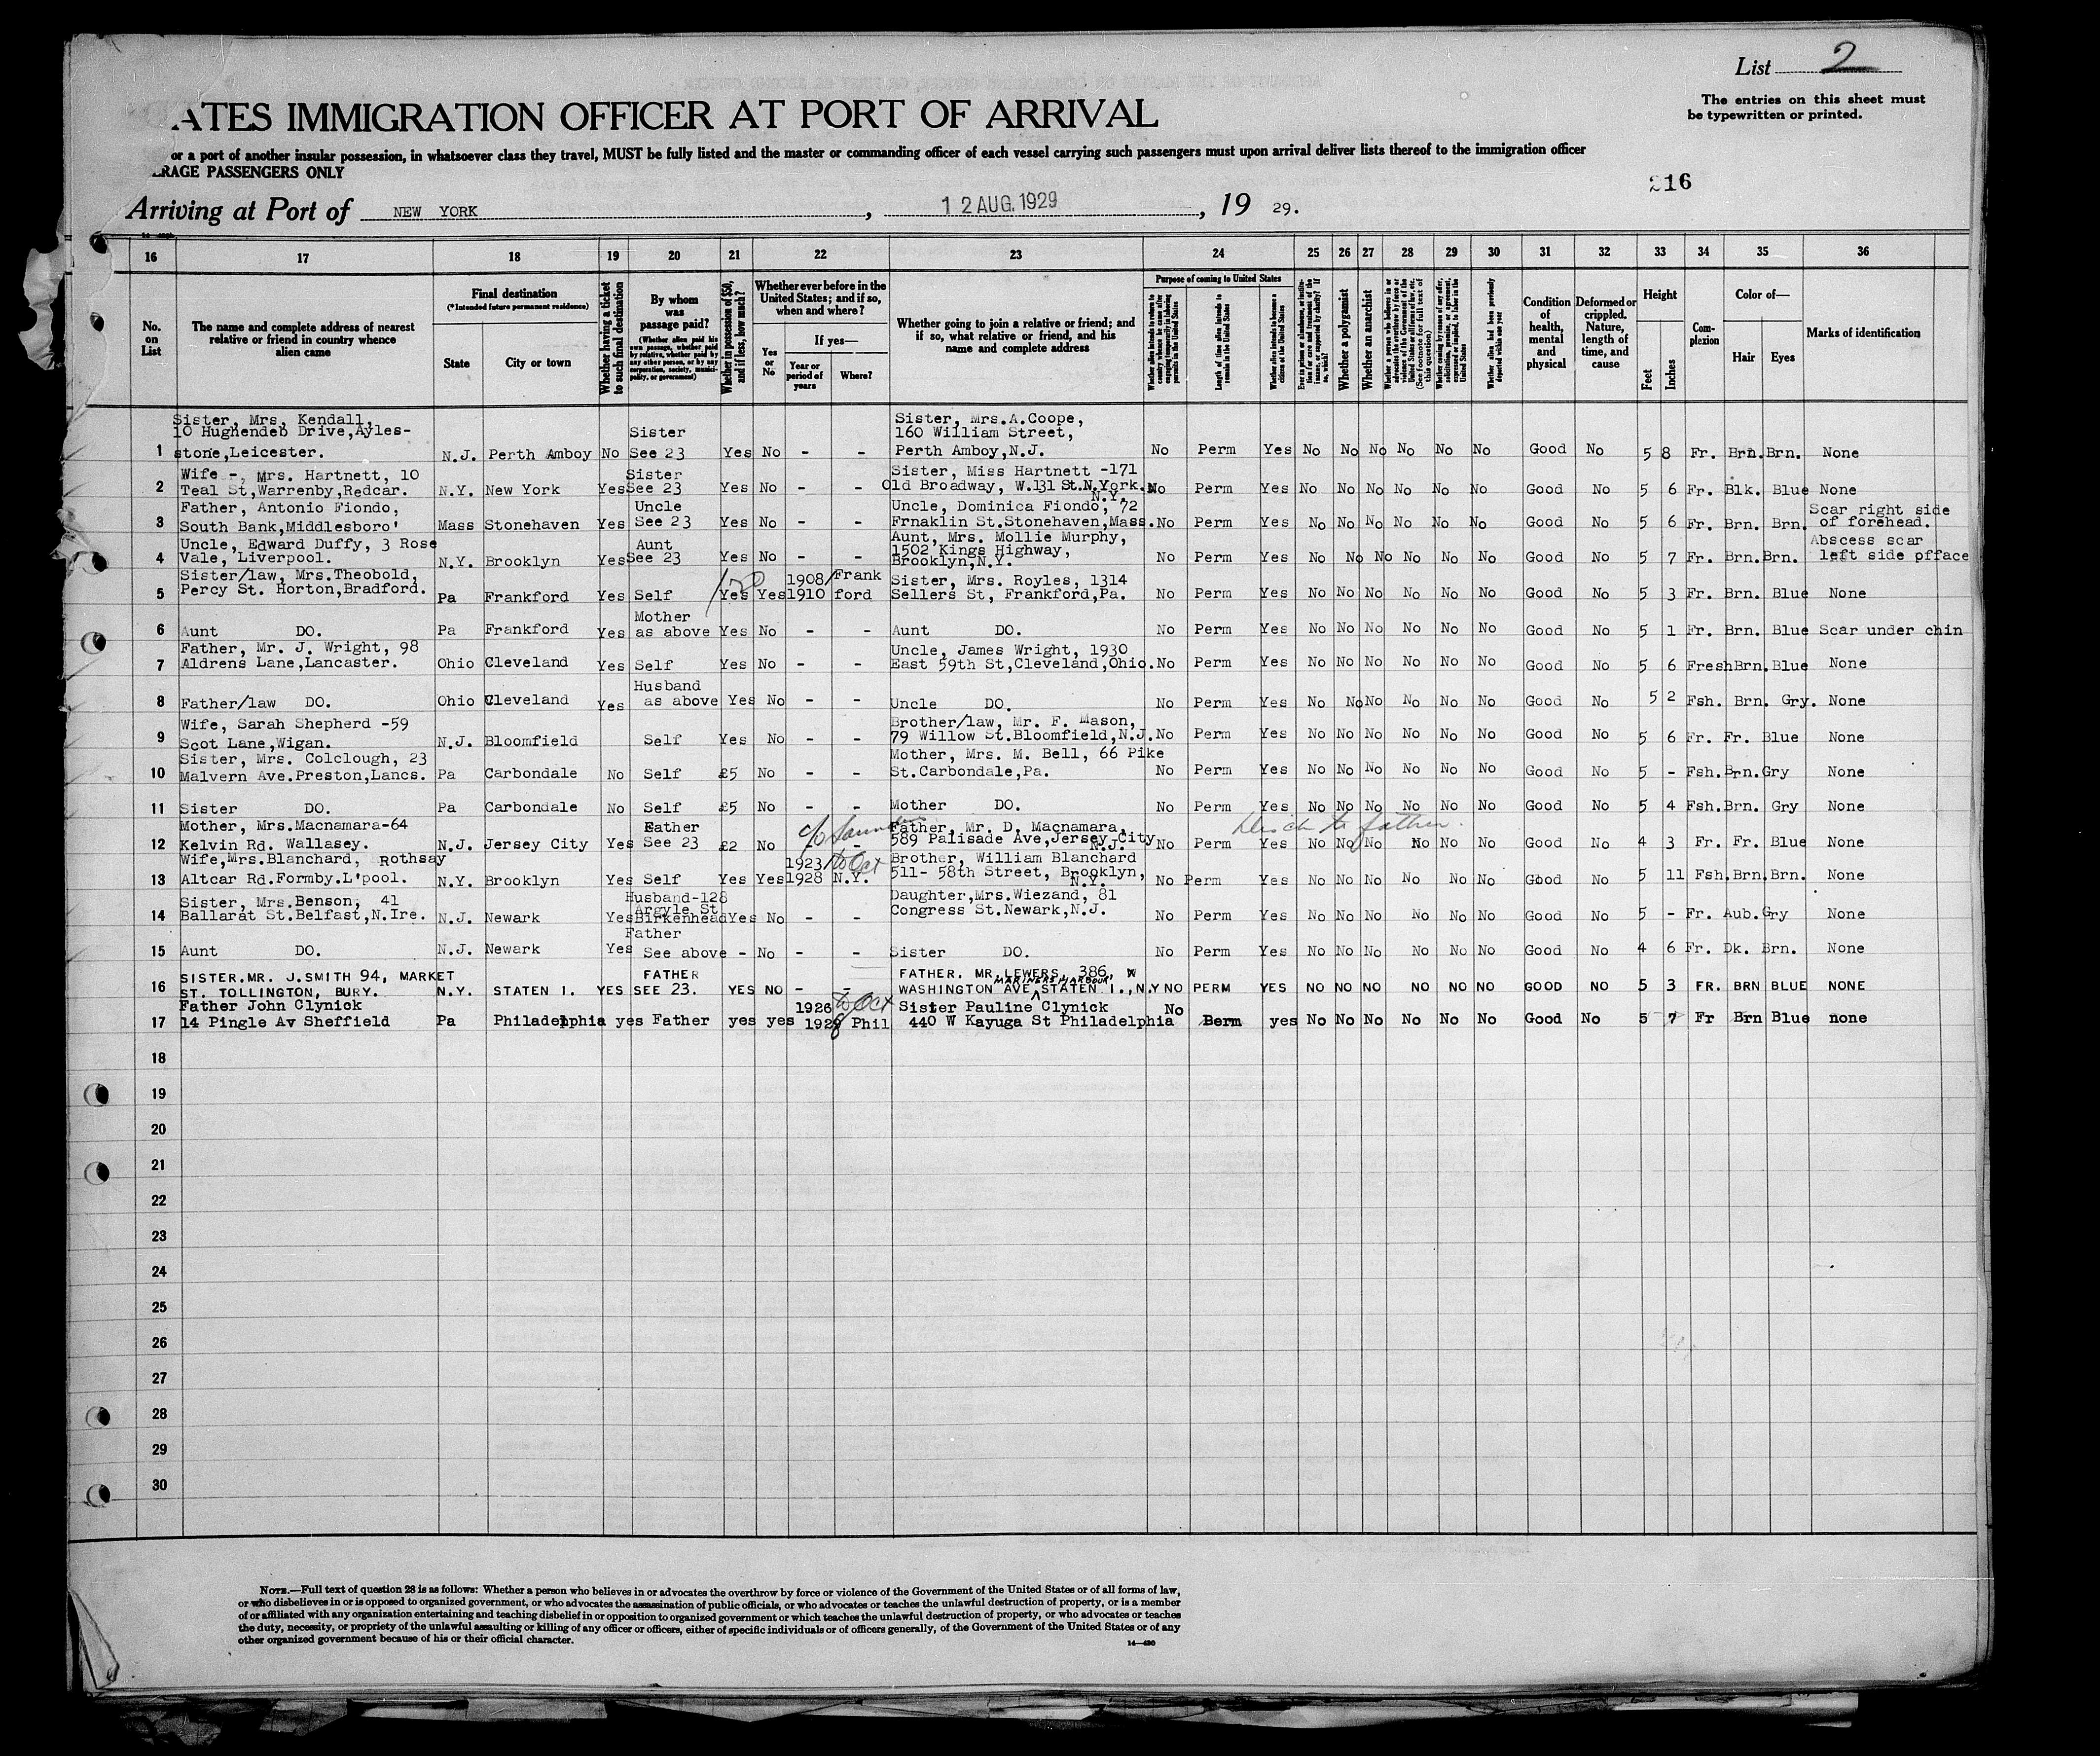 List 2
The entries on this sheet must
be typewritten or printed.
ATES IMMIGRATION OFFICER AT PORT OF ARRIVAL
or a port of another insular possession, in whatsoever class they travel, MUST be fully listed and the master or commanding officer of each vessel carrying such passengers must upon arrival deliver lists thereof to the immigration officer
RAGE PASSENGERS ONLY
216
Arriving at Port of NEW YORK, 12 AUG. 1929, 19 29.
16 17 18 19 20 21 22 23 24 25 26 27 28 29 30 31 32 33 34 35 36
No. on List
The name and complete address of nearest relative or friend in country whence alien came
Final destination
(*Intended future permanent residence)
State
City or town
Whether having a ticket to such final destination
By whom was passage paid?
(Whether alien paid his own passage, whether paid by relative, whether paid by any other person, or by any corporation, society, municipality, or government)
Whether in possession of $50, and if less, how much?
Whether ever before in the United States; and if so, when and where?
Yes or No
If yes—
Year or period of years
Where?
Whether going to join a relative or friend; and if so, what relative or friend, and his name and complete address
Purpose of coming to United States
Length of time alien intends to remain in the United States
Whether alien intends to become a citizen of the United States
Whether a polygamist
Whether an anarchist
(See footnote for full text of this question)
Condition of health, mental and physical
Deformed or crippled. Nature, length of time, and cause
Height
Feet
Inches
Complexion
Color of—
Hair
Eyes
Marks of identification
1 Sister, Mrs, Kendall, 10 Hughenden Drive,Aylestone,Leicester. N.J. Perth Amboy No Sister See 23 Yes No - - Sister, Mrs.A.Coope, 160 William Street, Perth Amboy,N.J. No Perm Yes No No No No No No Good No 5 8 Fr. Brn. Brn. None
2 Wife -, Mrs. Hartnett, 10 Teal St,Warrenby,Redcar. N.Y. New York Yes Sister See 23 Yes No - - Sister, Miss Hartnett -171 Old Broadway, W.131 St.N.York. N.Y. No Perm Yes No No No No No No Good No 5 6 Fr. Blk. Blue None
3 Father, Antonio Fiondo, South Bank,Middlesboro' Mass Stonehaven Yes Uncle See 23 Yes No - - Uncle, Dominica Fiondo, 72 Frnaklin St.Stonehaven,Mass. No Perm Yes No No No No No No Good No 5 6 Fr. Brn. Brn. Scar right side of forehead.
4 Uncle, Edward Duffy, 3 Rose Vale, Liverpool. N.Y. Brooklyn Yes Aunt See 23 Yes No - - Aunt, Mrs. Mollie Murphy, 1502 Kings Highway, Brooklyn,N.Y. No Perm Yes No No No No No No Good No 5 7 Fr. Brn. Brn. Abscess scar left side pfface
5 Sister/law, Mrs.Theobold, Percy St. Horton,Bradford. Pa Frankford Yes Self 150 Yes Yes 1908/1910 Frank ford Sister, Mrs. Royles, 1314 Sellers St, Frankford,Pa. No Perm Yes No No No No No No Good No 5 3 Fr. Brn. Blue None
6 Aunt DO. Pa Frankford Yes Mother as above Yes No - - Aunt DO. No Perm Yes No No No No No No Good No 5 1 Fr. Brn. Blue Scar under chin
7 Father, Mr. J. Wright, 98 Aldrens Lane,Lancaster. Ohio Cleveland Yes Self Yes No - - Uncle, James Wright, 1930 East 59th St,Cleveland,Ohio. No Perm Yes No No No No No No Good No 5 6 Fresh Brn. Blue None
8 Father/law DO. Ohio Cleveland Yes Husband as above Yes No - - Uncle DO. No Perm Yes No No No No No No Good No 5 2 Fsh. Brn. Gry. None
9 Wife, Sarah Shepherd -59 Scot Lane,Wigan. N.J. Bloomfield Self Yes No - - Brother/law, Mr. F. Mason, 79 Willow St.Bloomfield,N.J. No Perm Yes No No No No No No Good No 5 6 Fr. Fr. Blue None
10 Sister, Mrs. Colclough, 23 Malvern Ave.Preston,Lancs. Pa Carbondale No Self £5 No - - Mother, Mrs. M. Bell, 66 Pike St.Carbondale,Pa. No Perm Yes No No No No No No Good No 5 - Fsh. Brn. Gry None
11 Sister DO. Pa Carbondale No Self £5 No - - Mother DO. No Perm Yes No No No No No No Good No 5 4 Fsh. Brn. Gry None
12 Mother, Mrs.Macnamara-64 Kelvin Rd. Wallasey. N.J. Jersey City Yes Father See 23 £2 No - - c/o Saunders Father, Mr. D. Macnamara, 589 Palisade Ave,Jersey City N.J. No Perm Yes No No No No No No Good No 4 3 Fr. Fr. Blue None
to father.
13 Wife,Mrs.Blanchard, Rothsay Altcar Rd.Formby.L'pool. N.Y. Brooklyn Yes Self Yes Yes 1923/1928 to Oct N.Y. Brother, William Blanchard 511- 58th Street, Brooklyn, N.Y. No Perm Yes No No No No No No Good No 5 11 Fsh. Brn. Brn. None
14 Sister, Mrs.Benson, 41 Ballarat St.Belfast,N.Ire. N.J. Newark Yes Husband-128 Argyle St Birkenhead Yes No - - Daughter,Mrs.Wiezand, 81 Congress St.Newark,N.J. No Perm Yes No No No No No No Good No 5 - Fr. Aub. Gry None
15 Aunt DO. N.J. Newark Yes Father See above - No - - Sister DO. No Perm Yes No No No No No No Good No 4 6 Fr. Dk. Brn. None
16 SISTER.MR. J.SMITH 94, MARKET ST. TOLLINGTON, BURY. N.Y. STATEN I. YES FATHER SEE 23. YES NO - - FATHER. MR. LEWERS, 386, W WASHINGTON AVE MARINERS HARBOUR STATEN I.,N.Y NO PERM YES NO NO NO NO NO NO GOOD NO 5 3 FR. BRN BLUE NONE
17 Father John Clynick 14 Pingle Av Sheffield Pa Philadelphia yes Father yes yes 1926 1928 to Oct Phil Sister Pauline Clynick 440 W Kayuga St Philadelphia No Perm yes No No No No No No Good No 5 7 Fr Brn Blue none
18
19
20
21
22
23
24
25
26
27
28
29
30
NOTE.—Full text of question 28 is as follows: Whether a person who believes in or advocates the overthrow by force or violence of the Government of the United States or of all forms of law,
or who disbelieves in or is opposed to organized government, or who advocates the assassination of public officials, or who advocates or teaches the unlawful destruction of property, or is a member
of or affiliated with any organization entertaining and teaching disbelief in or opposition to organized government or which teaches the unlawful destruction of property, or who advocates or teaches
the duty, necessity, or propriety of the unlawful assaulting or killing of any officer or officers, either of specific individuals or of officers generally, of the Government of the United States or of any
other organized government because of his or their official character.
14—430